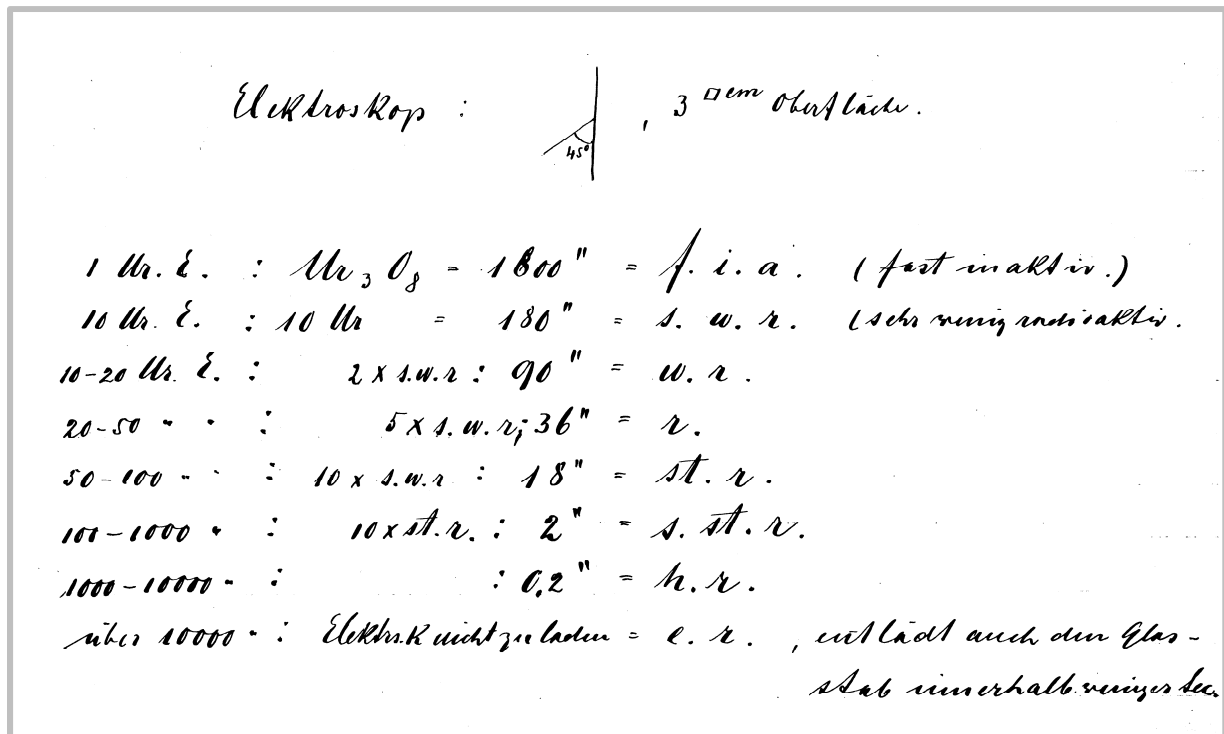 Elektroskop : 45° , 3 □cm Oberfläche.
1 Ur. E. : Ur₃O₈ = 1800" = f. i. a. (fast inaktiv.)
10 Ur. E. : 10 Ur = 180" = s. w. r. (sehr wenig radioaktiv.
10-20 Ur. E. : 2 x s.w.r : 90" = w. r.
20-50 " " : 5 x s.w.r; 36" = r.
50-100 " " : 10 x s.w.r : 18" = st. r.
100-1000 " : 10 x st.r. : 2" = s. st. r.
1000-10000 " : : 0,2" = h. r.
über 10000 " : Elektrs.K nicht zu laden = e. r. , entlädt auch den Glas-
stab innerhalb weniger Sec.